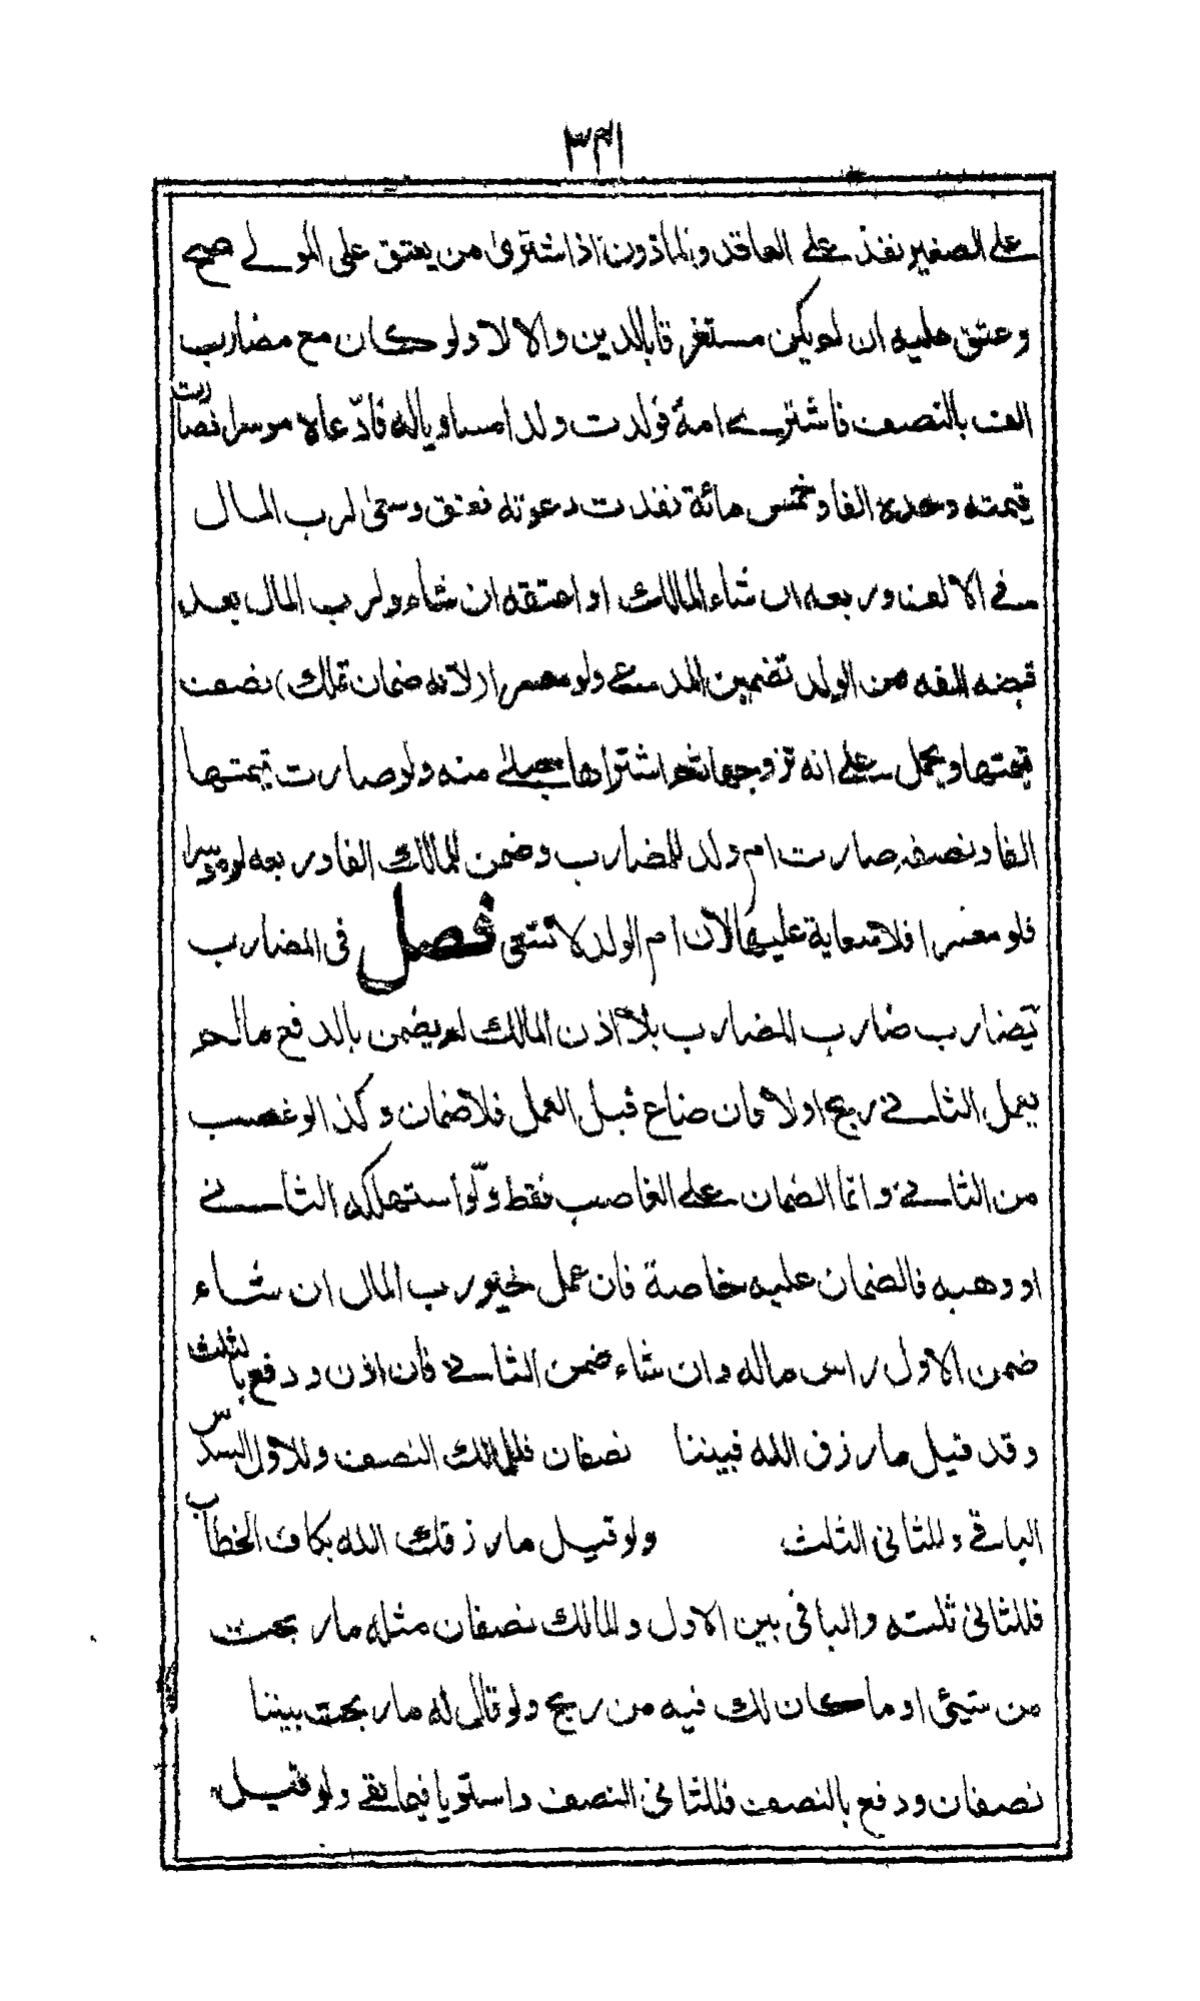 ٣٤١
على الصغير نفذ على العاقد والماذون اذا اشترى من يعتق على المولى صح
وعتق عليه ان لم يكن مستغرقا بالدين والا لا ولو كان مع مضارب
الف بالنصف فاشترى امة فولدت ولدا مساويا له فادّعاه موسرا فصارت
قيمته وحده الفا وخمس مائة نفذت دعوته فعتق وسعى لرب المال
فى الالف وربعه ان شاء المالك او اعتقه ان شاء ولرب المال بعد
قبضه الفه من الولد تضمين المدعى ولو معسرا (لانه ضمان تملك) نصف
قيمتها ويحمل على انه تزوجها ثم اشتراها حبلى منه ولو صارت قيمتها
الفا ونصفه صارت ام ولد للمضارب وضمن للمالك الفا وربعه لو موسرا
فلو معسرا فلا سعاية عليها لان ام الولد لا تسعى فصل فى المضارب
يضارب ضارب المضارب بلا اذن المالك لم يضمن بالدفع مالم
يعمل الثانى ربح اولا فان ضاع قبل العمل فلا ضمان وكذا لو غصب
من الثانى وانما الضمان على الغاصب فقط ولو استهلكه الثانى
او وهبه فالضمان عليه خاصة فان عمل خير رب المال ان شاء
ضمن الاول راس ماله وان شاء ضمن الثانى فان اذن ودفع بالثلث
وقد قيل مارزق الله فبيننا نصفان فللمالك النصف وللاول السدس
الباقى وللثانى الثلث ولو قيل مارزقك الله بكاف الخطاب
فللثانى ثلثه والباقى بين الاول والمالك نصفان مثله ماربحت
من شيئى او ما كان لك فيه من ربح ولو قال له ماربحت بيننا
نصفان ودفع بالنصف فللثانى النصف واستويا فيما بقى ولو قيل